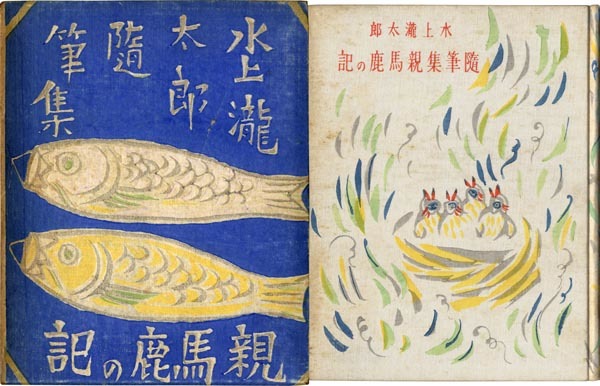 水上瀧
太郎
隨
筆集
親馬鹿の記
水上瀧太郎
隨筆集親馬鹿の記